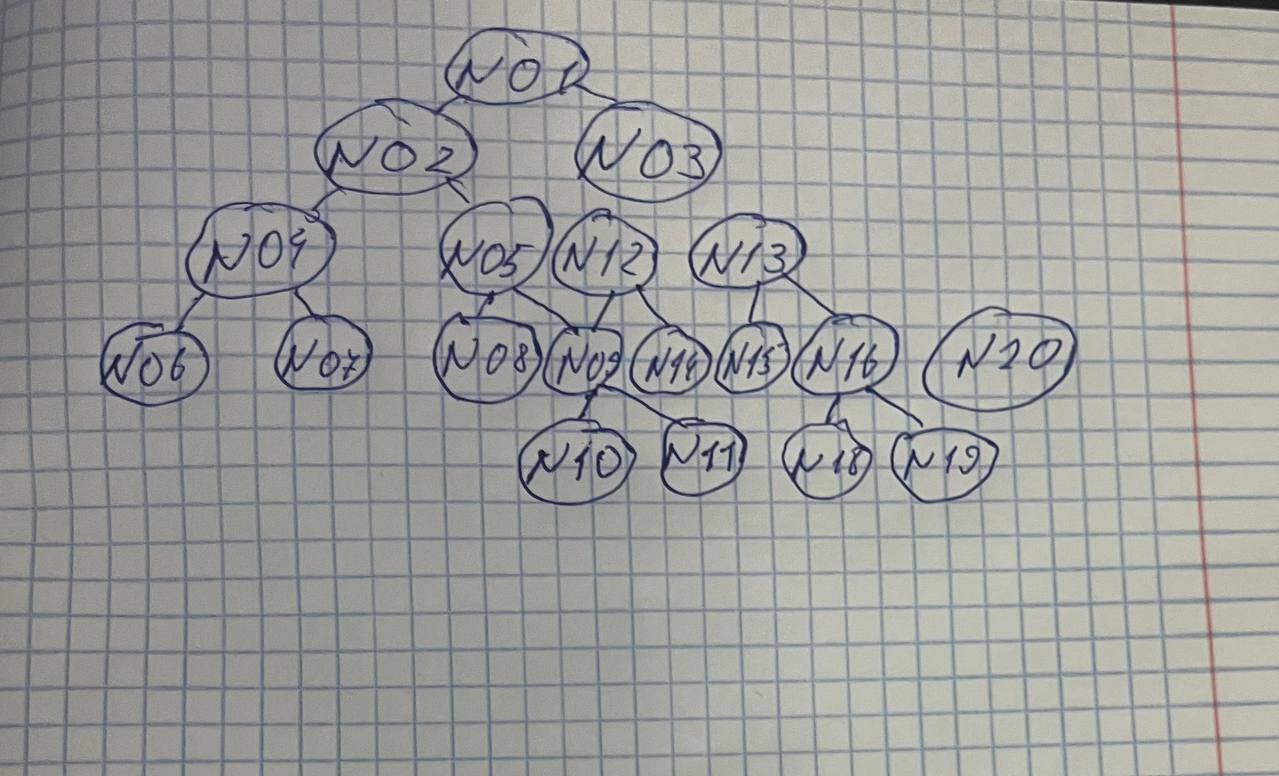 N01
N02 N03
N04 N05 N12 N13
N06 N07 N08 N09 N14 N15 N16 N20
N10 N11 N18 N19